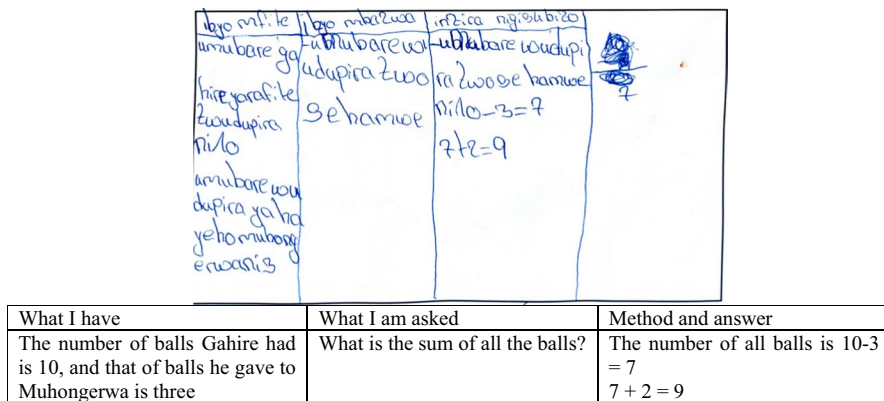 ibyo mfite
ibyo mbazwa
inzira nigisubizo
umubare ga
hire yarafite
zwoudupira
ni10
umubare wou
dupira yaha
yeho muhong
erwani3
udupira zwo
se hamwe
ra zwose hamwe
ni10-3=7
7+2=9
7
What I have
What I am asked
Method and answer
The number of balls Gahire had
is 10, and that of balls he gave to
Muhongerwa is three
What is the sum of all the balls?
The number of all balls is 10-3
= 7
7 + 2 = 9